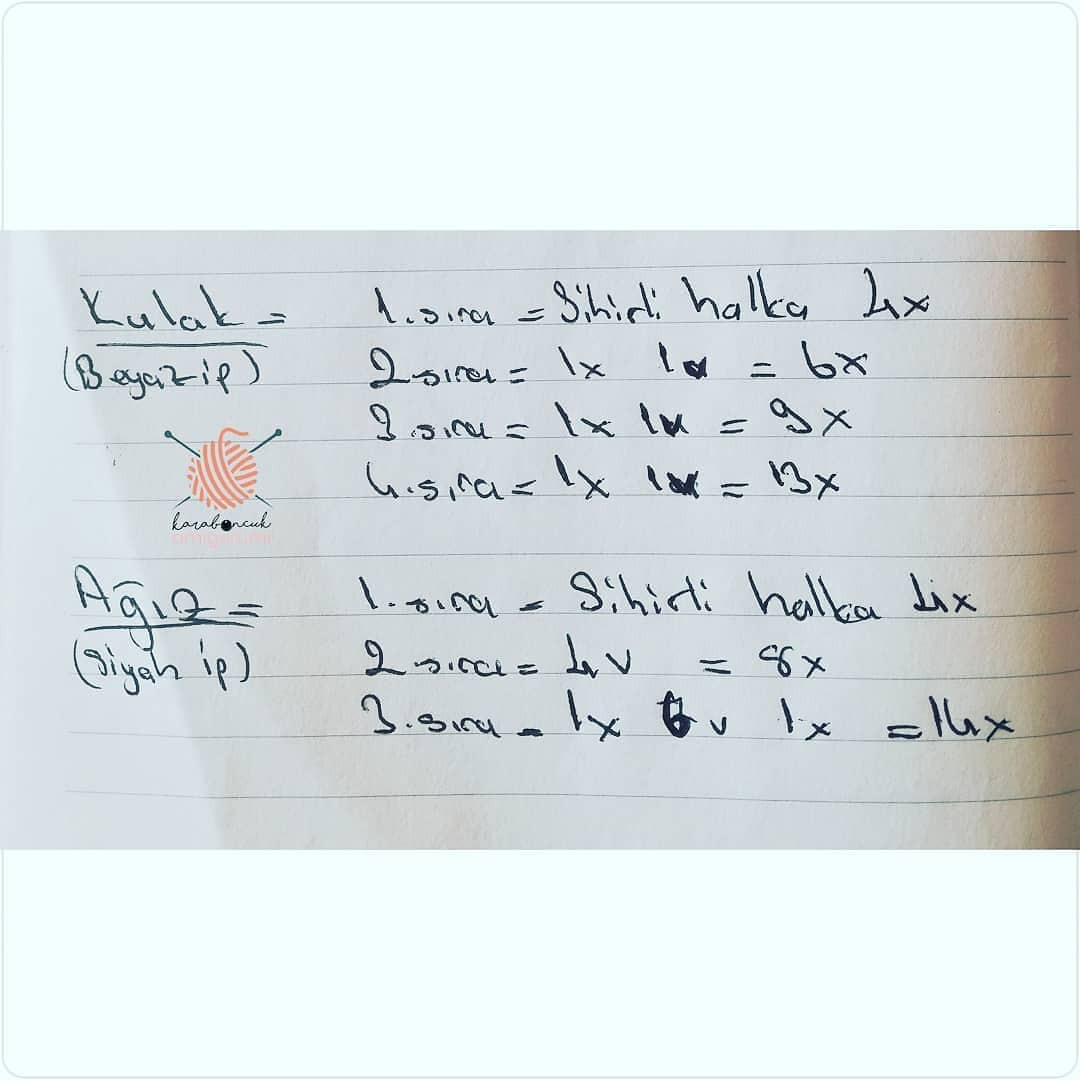 Kulak = 1.sıra = Sihirli halka 4x
(Beyaz ip) 2 sıra = 1x 1v = 6x
3.sıra = 1x 1v = 9x
4.sıra = 1x 1v = 13x
karaboncuk
amigurumi
Ağız = 1.sıra = Sihirli halka 4x
(Siyah ip) 2 sıra = 4v = 8x
3.sıra = 1x 6v 1x = 14x